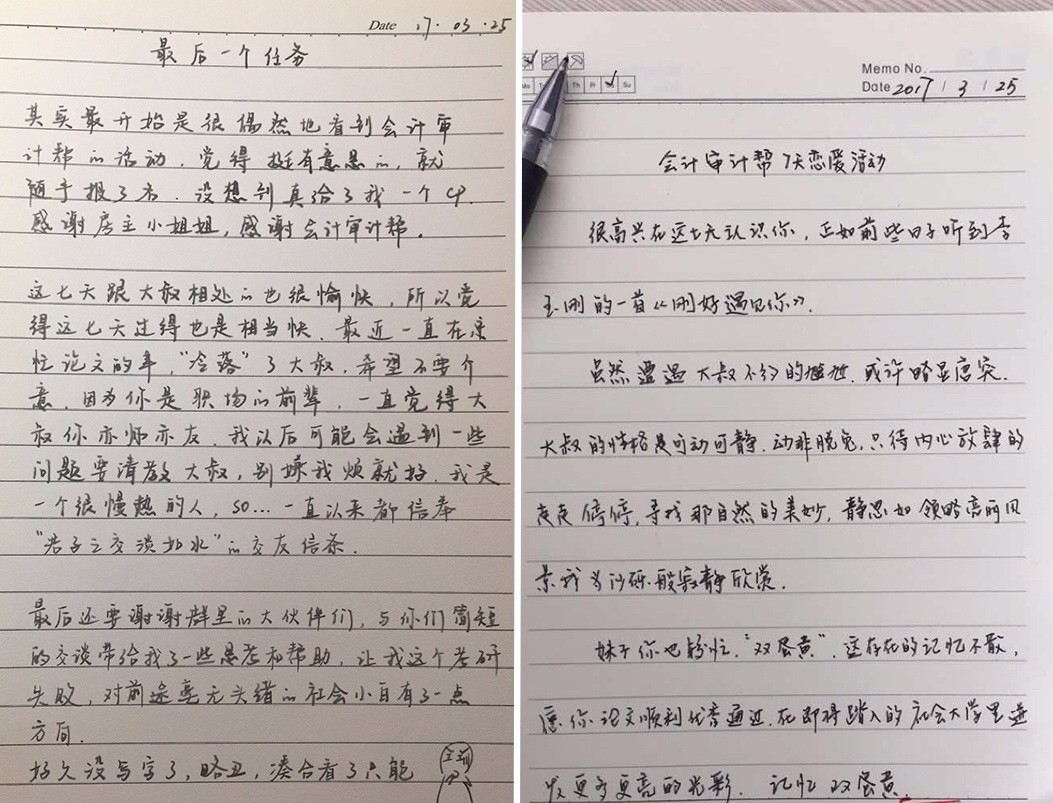 Date 17.03.25
最后一个任务
其实最开始是很偶然地看到会计审
计帮的活动，觉得挺有意思的，就
随手报了名。没想到真给了我一个CP.
感谢房主小姐姐，感谢会计审计帮。
这七天跟大叔相处的也很愉快，所以觉
得这七天过得也是相当快。最近一直在
忙论文的事，“冷落”了大叔，希望不要介
意。因为你是职场的前辈，一直觉得大
叔你亦师亦友。我以后可能会遇到一些
问题要请教大叔，别嫌我烦就好。我是
一个很慢热的人，so...一直以来都信奉
“君子之交淡如水”的交友信条。
最后还要谢谢群里的大伙伴们，与你们简短
的交谈带给我了一些思考和帮助，让我这个考研
失败，对前途毫无头绪的社会小白有了一点
方向。
好久没写字了，略丑，凑合看了只能
Memo No.
Mo Tu Th Fr Sa Su
Date 2017 / 3 / 25
会计审计帮7天恋爱活动
很高兴在这七天认识你，正如前些日子听到李
玉刚的一首《刚好遇见你》。
虽然遭遇大叔不约的尴尬，或许略显唐突。
大叔的性格是可动可静，动非脱兔，只待内心放肆的
走走停停，寻找那自然的美妙，静思如领略高雨风
景我当沙砾般寂静欣赏。
妹子你也够忙，“双蛋黄”，这存在的记忆不散，
愿你论文顺利优秀通过，在即将踏入的社会大学里迸
发更多更亮的光彩。 记忆双蛋黄